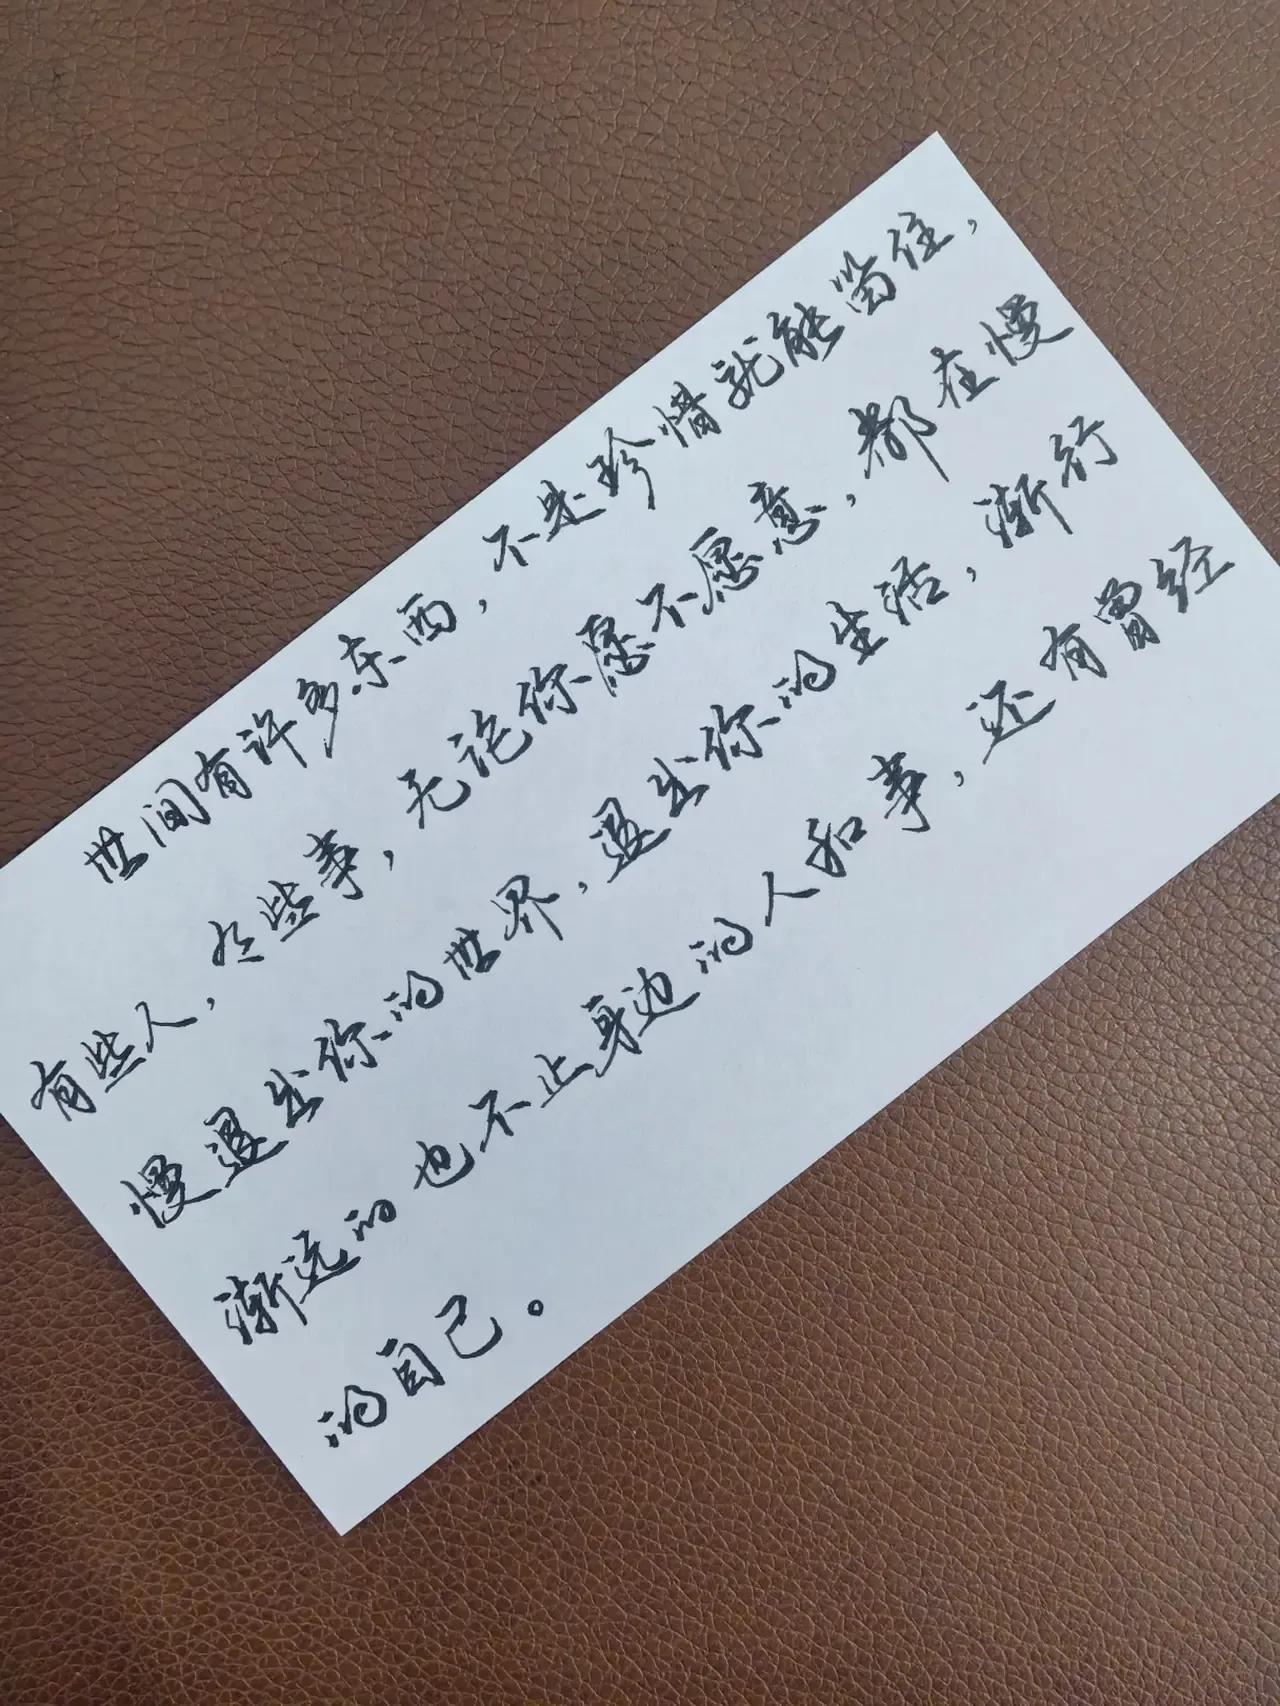 世间有许多东西，不是珍惜就能留住，
有些人，有些事，无论你愿不愿意，都在慢
慢退出你的世界，退出你的生活，渐行
渐远的也不止身边的人和事，还有曾经
的自己。